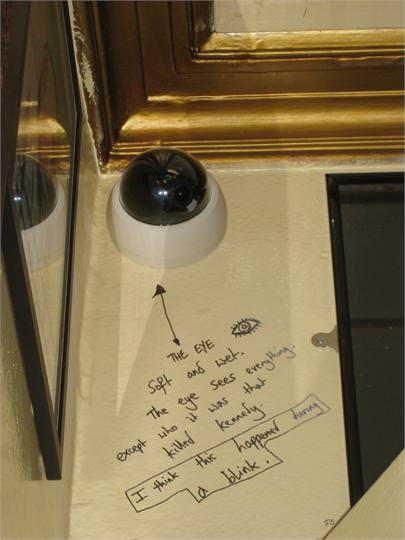 THE EYE
Soft and wet.
The eye sees everything.
except who it was that
killed Kennedy
I think this happened during
a blink.
50